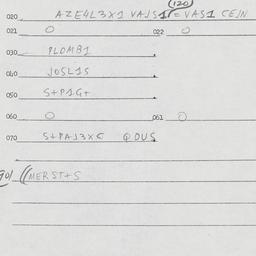 (120)
020 AZE4L3X1 VAJS1 = VAS1 CEJN
021 O 022 O
030 PLOMB1
040 JOSL1S
050 S+P1G+
060 O 061 O
070 S+PAJ3XC QDUS
90/ ((MERST+S